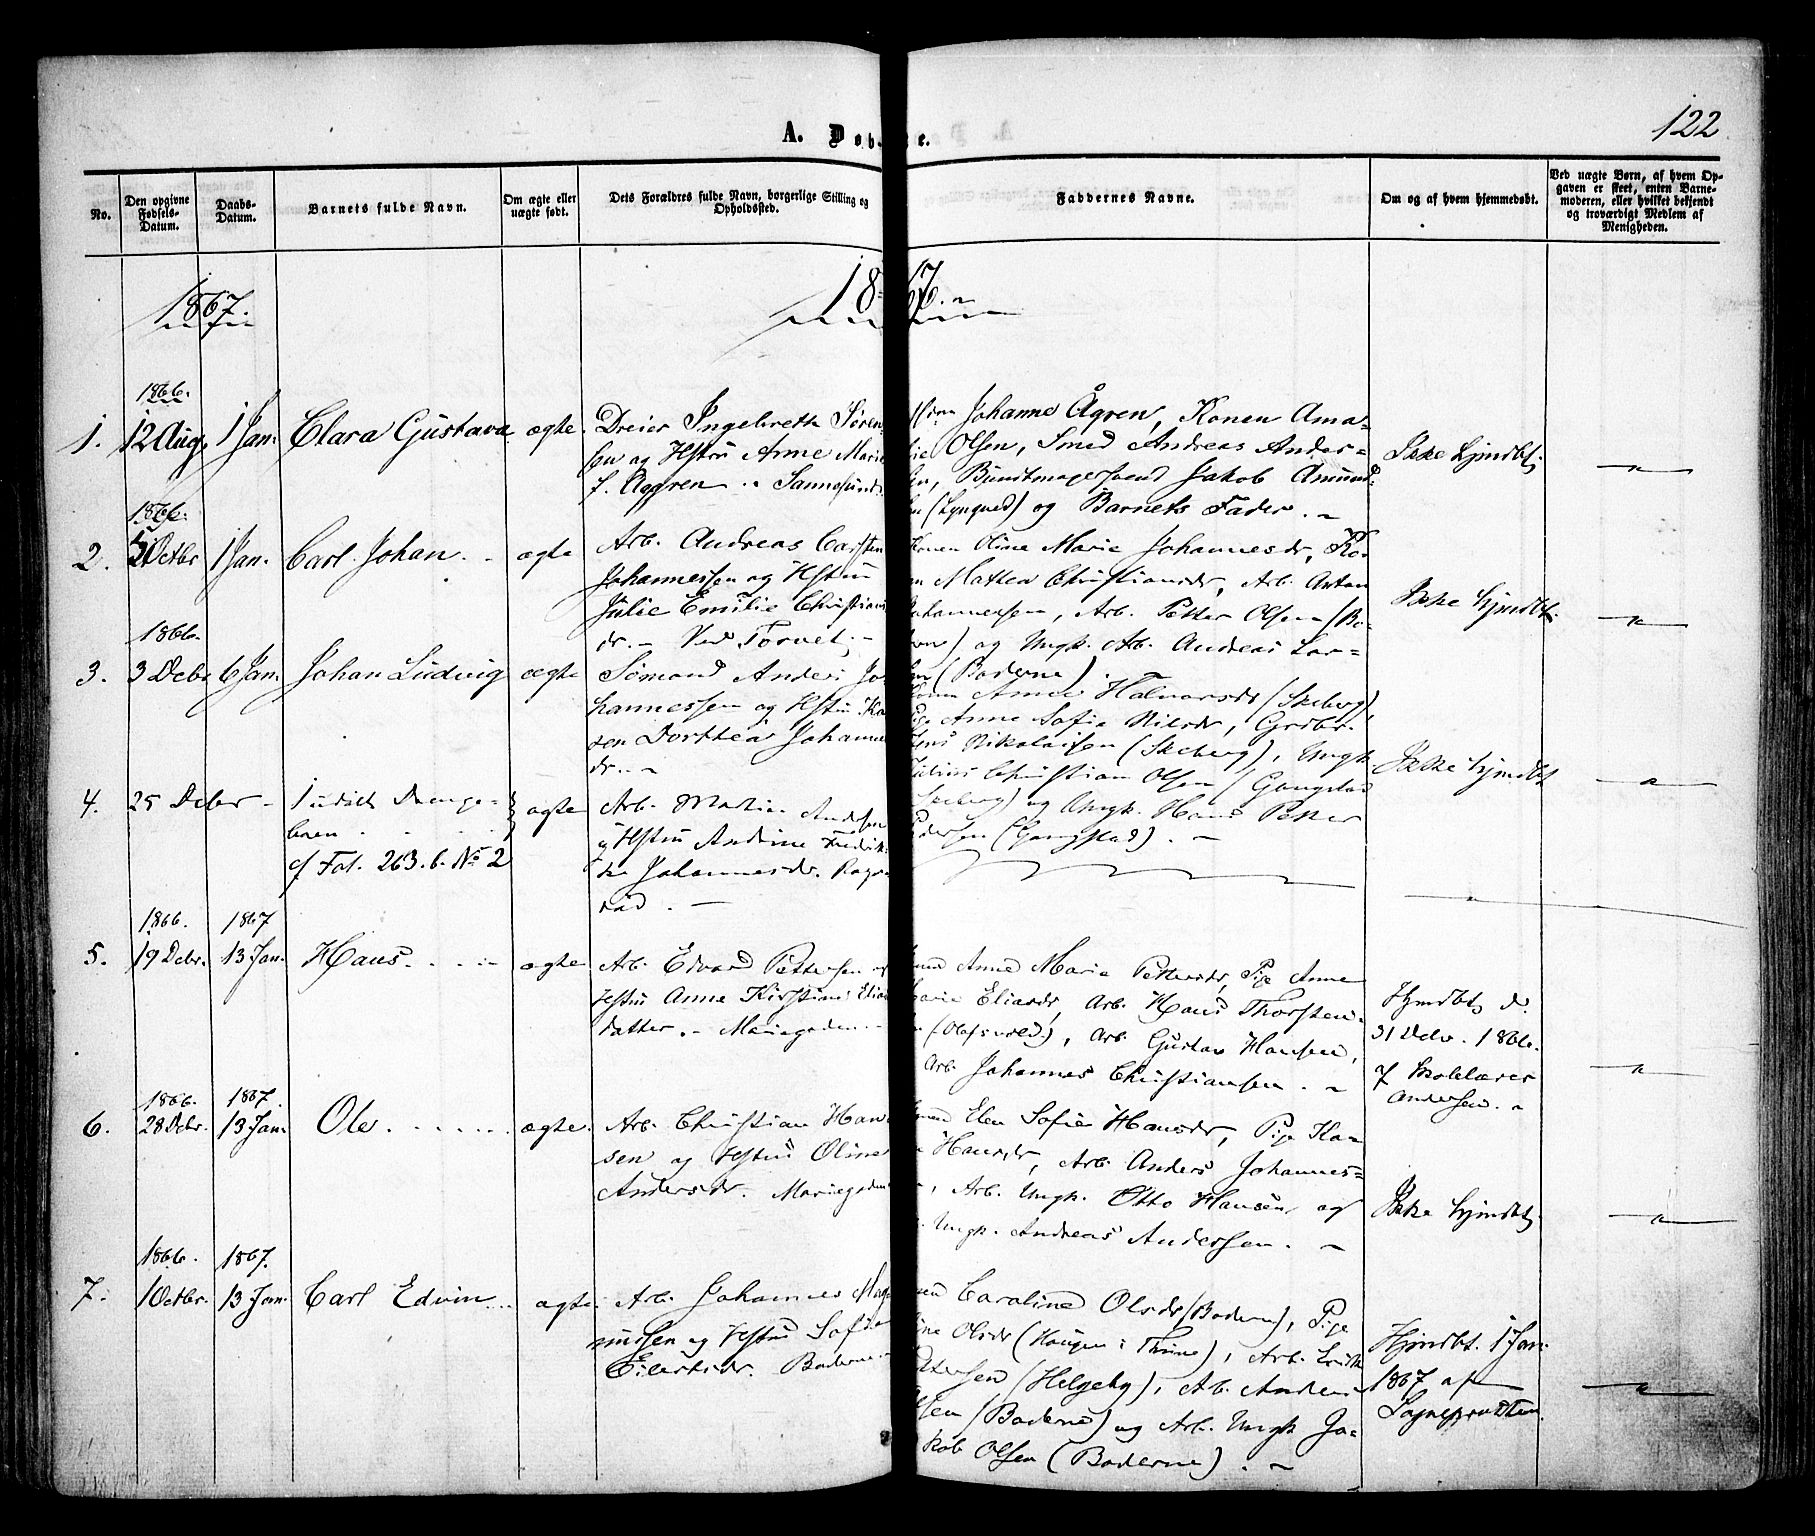 122
A. Døb
e.
No.
Den opgivne Fødsels-Datum.
Daabs-Datum.
Barnets fulde Navn.
Om ægte eller uægte født.
Dets Forældres fulde Navn, borgerlige Stilling og Opholdssted.
Faddernes Navne.
Om og af hvem hjemmedøbt.
Ved uægte Børn, af hvem Opgaven er skeet, enten Barnemoderen, eller hvilket bekjendt og troværdigt Medlem af Menigheden.
1867.
1867.
1866.
1. 12 Aug. 1 Jan. Clara Gustava ægte.
Dreier Ingebreth Søren
sen og Hstru Anne Marie
f. Aggren .. Sannesund
Johanne Ågren, Konen Ama-
lie Olsen, Smed Andreas Ander-
sen, Bundtmagersvend Jakob Amund
(Lynqued) og Barnets Fader. -
Ikke hjmdbt.
1866.
2. 5 Octbr 1 Jan. Carl Johan. ægte
Arb. Andreas Carsten
Johannessen og Hstru
Julie Emilie Christians
dr. - Ved Torvet. -
Konen Oline Marie Johannesdr, Ko-
Mathea Christiansdr, Arb. Anton
Johannessen, Arb. Petter Olsen (Bo-
) og Ungk. Arb. Andreas Lar-
sen (Boderne).
Ikke hjmdbt.
1866.
3. 3 Debr 6 Jan. Johan Ludvig ægte
Sømand Anders Jo
hannessen og Hstru Ka
ren Dorthea Johannes
dr. -
Halvorsdr (Skeberg),
Pige Anne Sofie Nilsdr, Grdbr.
Jens Nikolaisen (Skeberg), Ungk.
Julius Christian Olsen (Gangstad
Skeberg) og Ungk. Hans Petter
Pedersen (Gangstad). -
Ikke hjmdbt
4. 25 Debr - 1 udøbt Drenge-
barn
cf Fol. 263. b. No 2
ægte
Arb. Martin Andersen
og Hstru Andrine Fredrik-
ke Johannesdr.
rud. -
1866. 1867
5. 19 Debr. 13 Jan. Hans. ægte
Arb. Edvard Pettersen og
Hstru Anne Kirstine Elias
datter. - Mariegaden -
Anne Marie Pettersdr, Pige Anne
Marie Eliasdr, Arb. Hans Thorsten-
(Olafsvold), Arb. Gustav Hansen,
Arb. Johannes Christiansen. -
Hjmdbt d.
31 Debr. 1866.
af Skolelærer
Andersen. -
1866. 1867.
6. 28 Debr. 13 Jan. Ole. ægte.
Arb. Christian Han
sen og Hstru Oline
Andersdr. Mariegaden
Elen Sofie Hansdr, Pige Ka-
Hansdr, Arb. Anders Johannes-
, Arb. Ungk. Otto Hansen og
Ungk. Andreas Andersen. -
Ikke hjmdbt.
1866. 1867.
7. 1 Octbr. 13 Jan. Carl Edvin ægte
Arb. Johannes Mag
nussen og Hstru Sofie
Eilertsdr. Boderne
Caroline Olsdr (Boderne), Pige
Olsdr (Haugen i Thune), Arb.
Pettersen (Helgeby), Arb. Anders
Olsen (Boderne) og Arb. Ungk Ja-
kob Olsen (Boderne). -
Hjmdbt. 1 Jan.
1867 af
Sognepræsten.